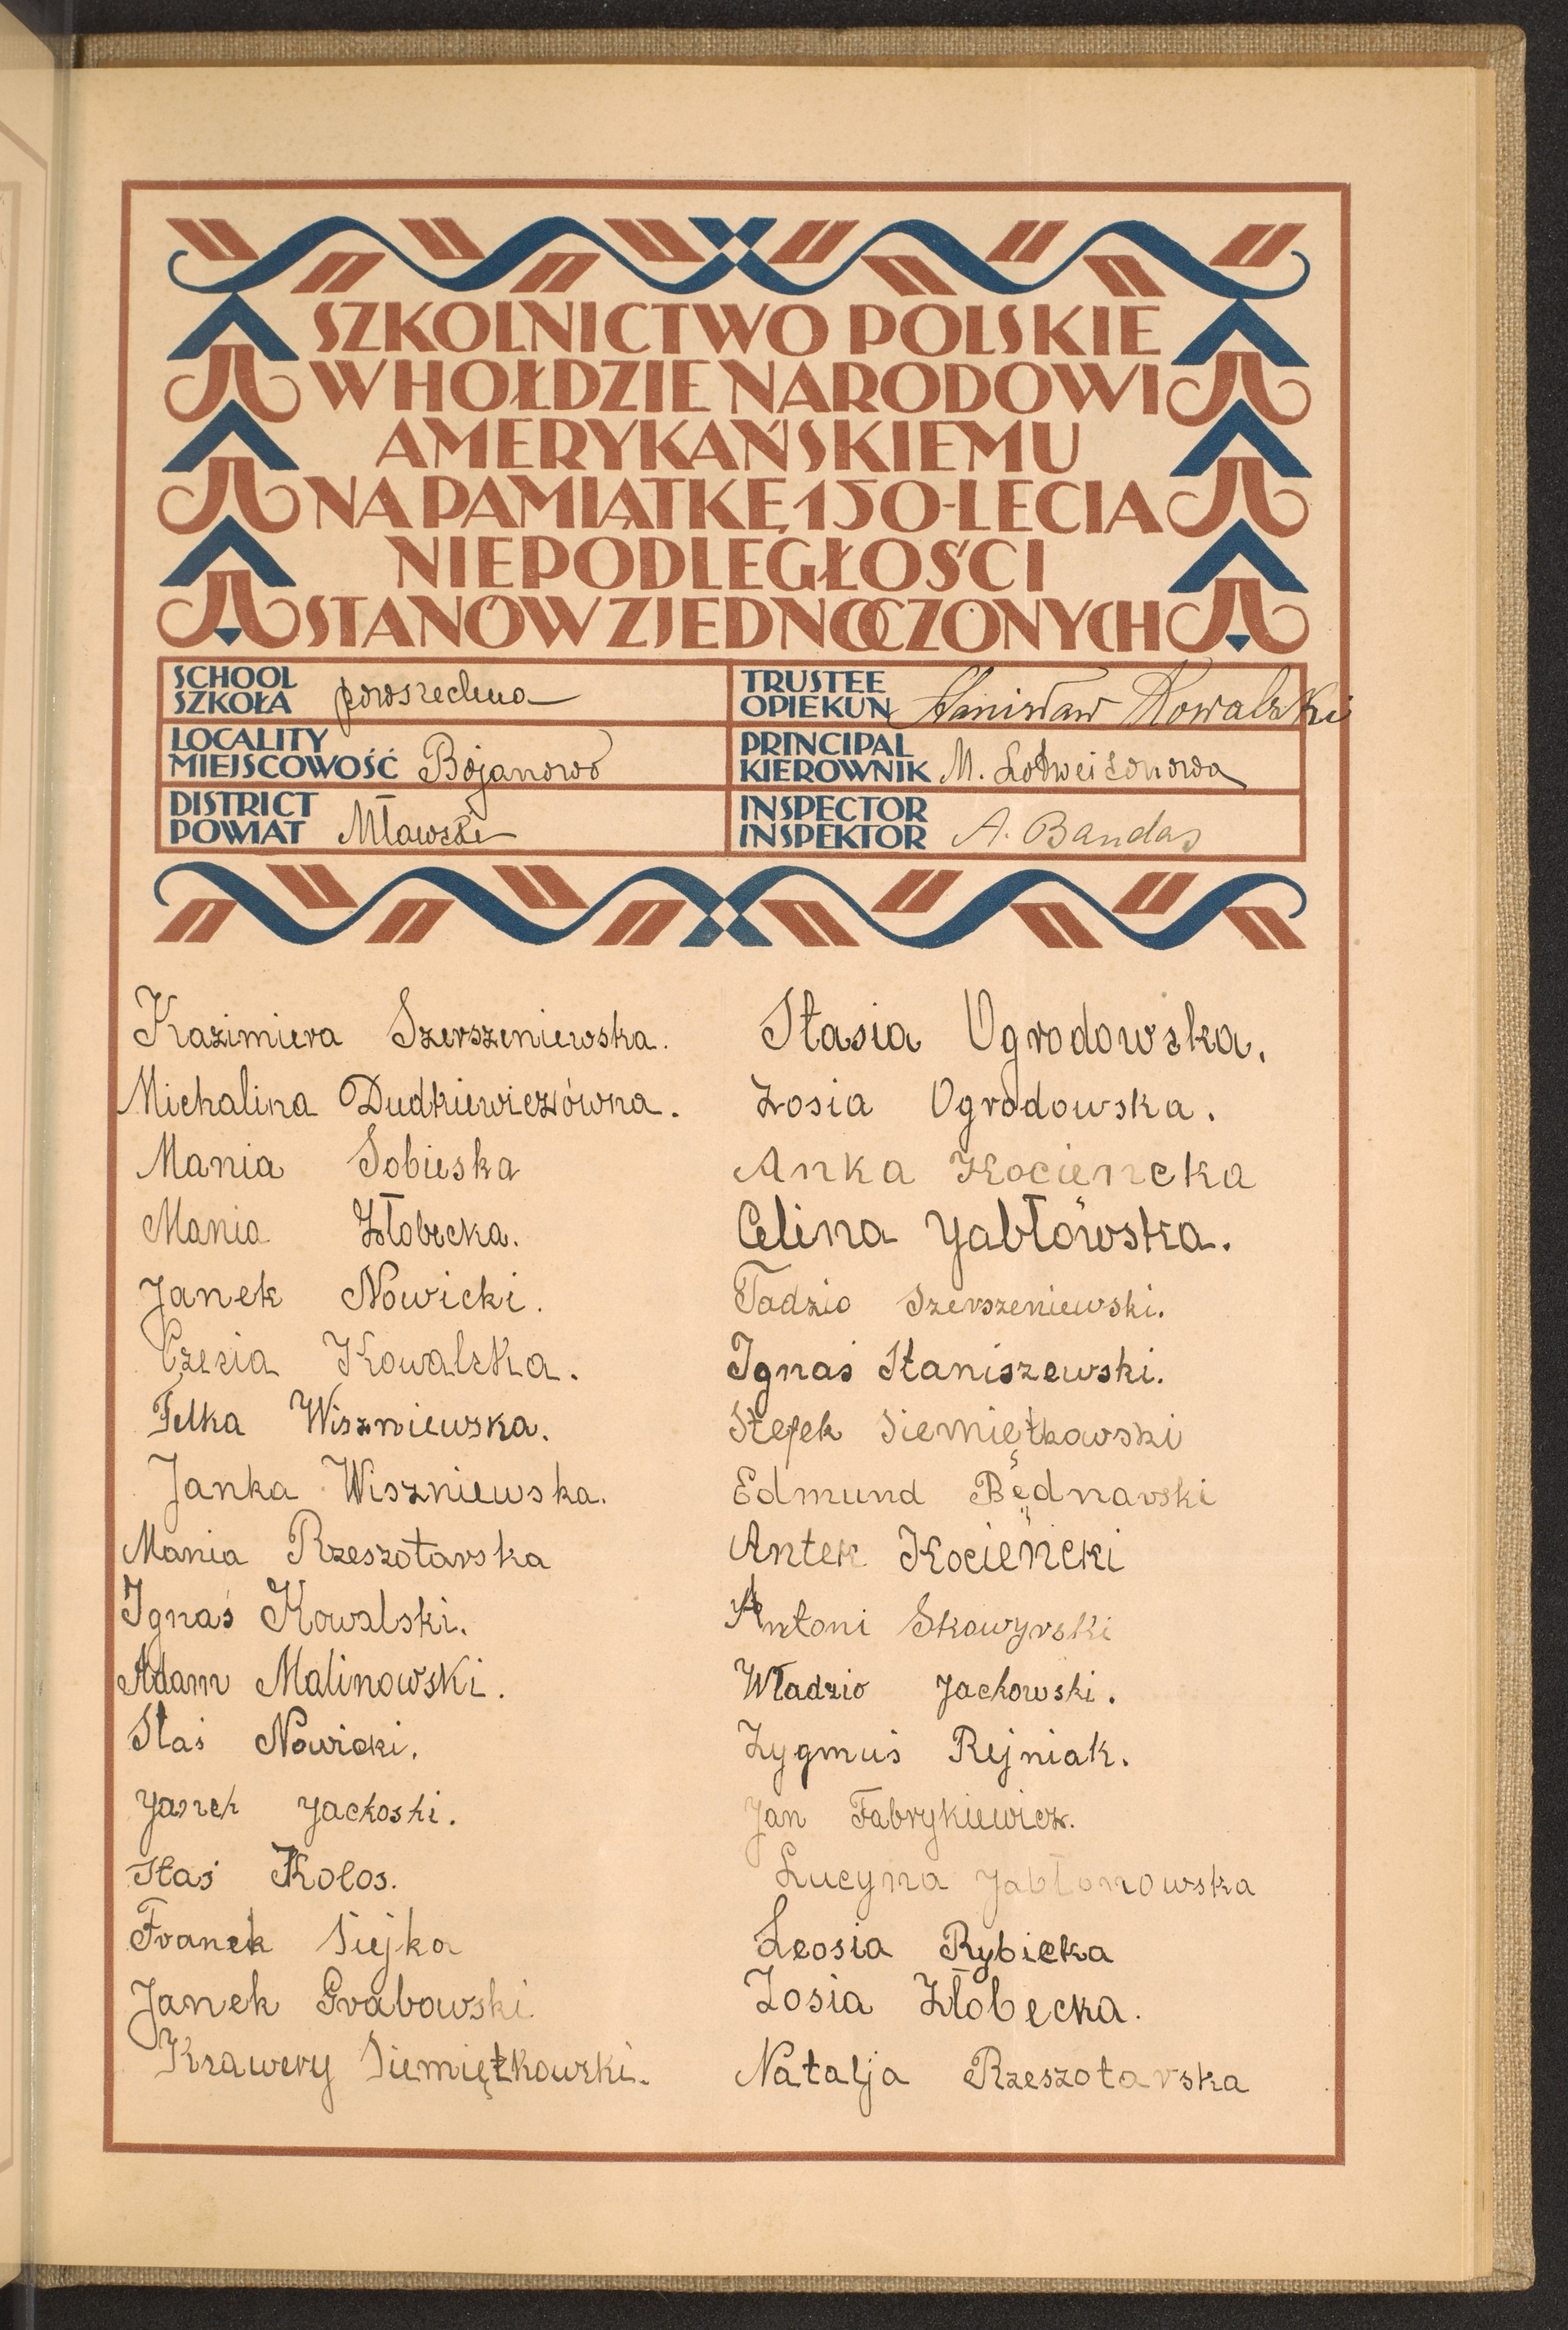 SZKOLNICTWO POLSKIE
W HOŁDZIE NARODOWI
AMERYKAŃSKIEMU
NA PAMIĄTKĘ 150-LECIA
NIEPODLEGŁOŚCI
STANÓW ZJEDNOCZONYCH
SCHOOL
SZKOŁA powszechna
LOCALITY
MIEJSCOWOŚĆ Bojanowo
DISTRICT
POWIAT Mławski
TRUSTEE
OPIEKUN Stanisław Kowalski
PRINCIPAL
KIEROWNIK M.
INSPECTOR
INSPEKTOR A. Bandas
Kazimiera Szerszeniewska.
Michalina Dudkiewiczówna.
Mania Sobieska
Mania Złobecka.
Janek Nowicki.
Czesia Kowalska.
Felka Wiszniewska.
Janka Wiszniewska.
Mania Rzeszotarska
Ignaś Kowalski.
Adam Malinowski.
Staś Nowicki.
Janek Jackoski.
Staś Kołos.
Franek Siejka
Janek Grabowski.
Ksawery Siemiętkowski.
Stasia Ogrodowska.
Zosia Ogrodowska.
Anka Kociencka
Celina Jabłówska.
Tadzio Szerszeniewski.
Ignaś Staniszewski.
Stefek Siemiętkowski
Edmund Będnarski
Antek Kocieńcki
Antoni Skowyrski
Władzio Jackowski.
Zygmuś Rejniak.
Jan Fabrykiewicz.
Lucyna Jabłonowska
Leosia Rybicka
Zosia Złobecka.
Natalja Rzeszotarska